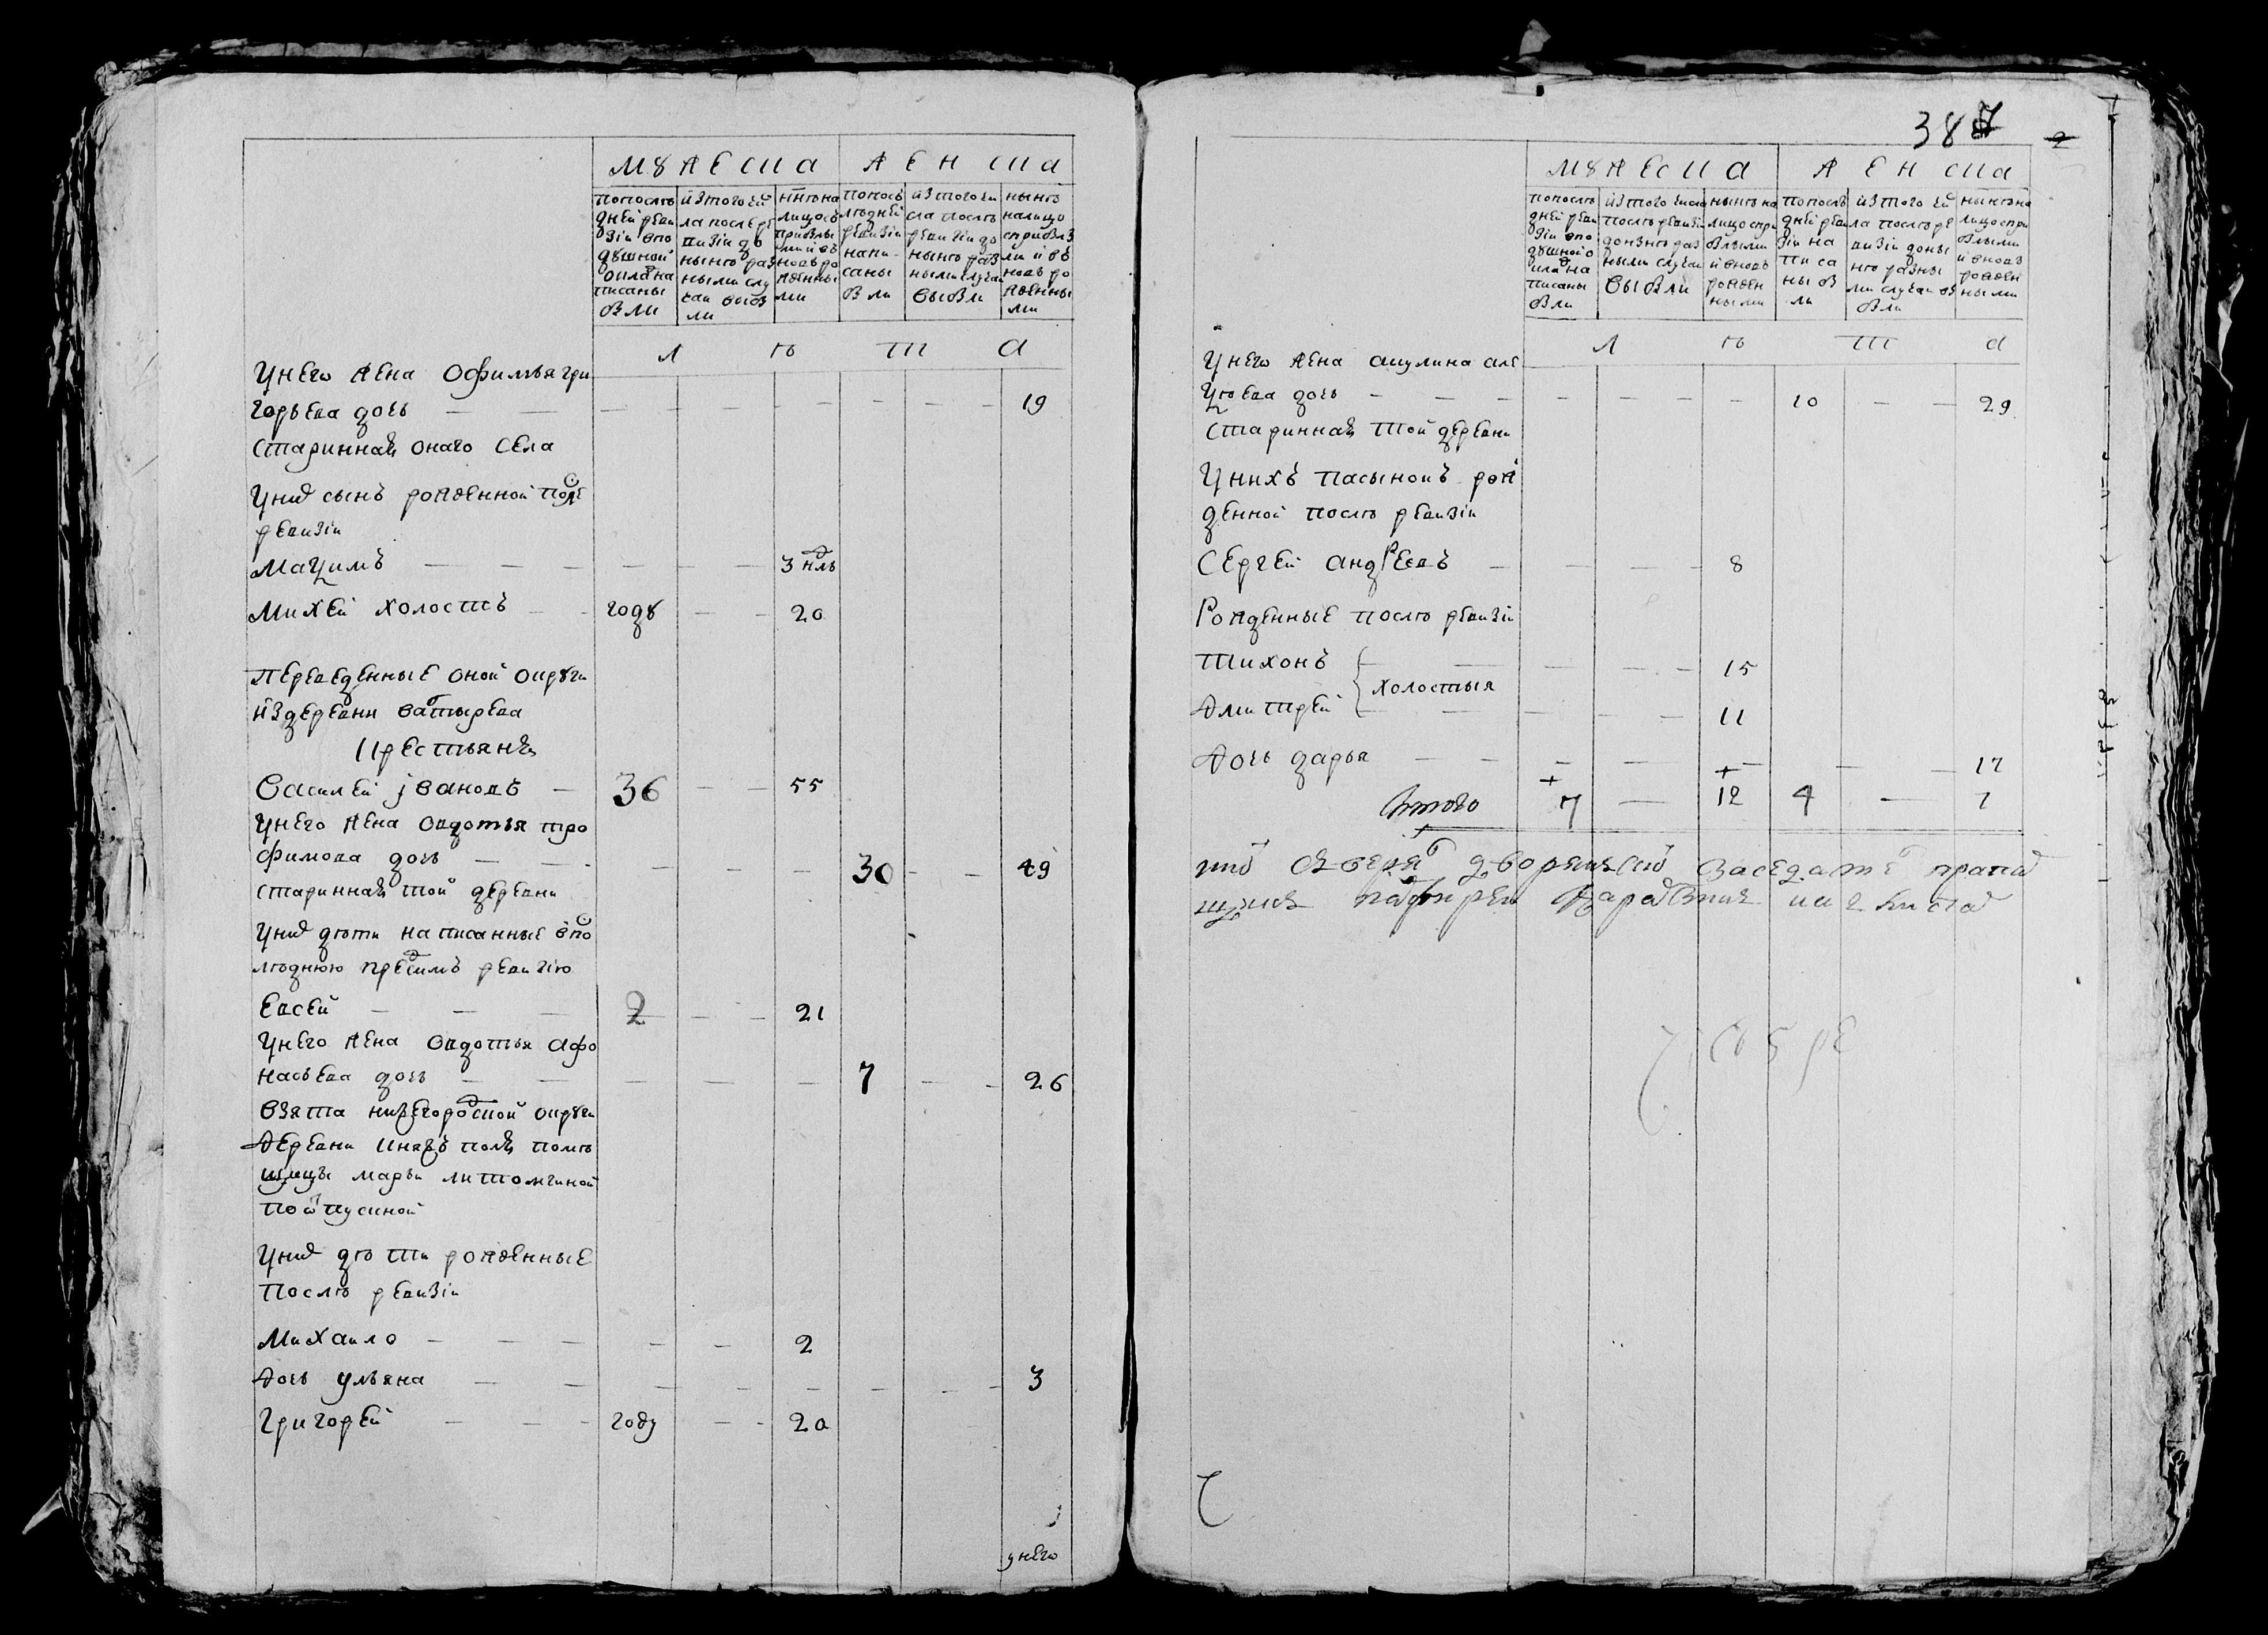 мужеска
женска
попосле
дней реви
зіи впо
душной
окладна
писаны
были
изтогочи
ла послере
визіи до
ныне раз
ными слу
чаи выбы
ли
ныне на
лицо съ
прибылы
ми и въ
новь ро
жденны
ми
попосле
лѣдней
ревизіи
напи-
саны
были
изтого чи
сла после
ревизіи до
ныне раз
ными случаи
выбыли
ныне
налицо
сприбылы
ми и въ
новь ро
жденны
ми
л ѣ т а
У него жена офимья гри
горьева дочь — — 19
старинная онаго села
У них сынъ рожденной после
ревизіи
Макъимъ — — 3 нлъ
Михей холостъ — году — 20
Переведенные оной округи
из деревни батырева
крестьяне
Василей іван овъ — 36 — — 55
У него жена овдотья тро
фимова дочь — — 30 — — 49
старинная той деревни
У них дѣти написанные впо
лѣднюю пред симъ ревизію
Евсей — — — 2 — — 21
У него жена овдотья афо
насьева дочь — — — 7 — — 26
взята нижегородской округи
деревни поля помѣ
щицы марьи
по отпускной
У них дѣти рожденные
после ревизіи
Михаило — — — 2
Дочь ульяна — — 3
Григорей — — году — 20
у него
387
2
мужеска
женска
попосле
дней реви
зіи впо
душной о
кладна
писаны
были
изтого числа
после ревизіи
доныне раз
ными случаи
выбыли
ныне на
лицо спри
былыми
и вновь
рожден
ными
попосле
дней реви
зіи на
писа
ны бы
ли
изтого чи
ла послере
визіи доны
не разны
ми случаи вы
были
ныне на
лицо спри
былыми
и вновь
рожден
ными
л ѣ т а
У него жена акулина але
ксѣева дочь — — — 10 — — 29
старинная той деревни
У нихъ пасынокъ рож
денной после ревизіи
Сергей андреевъ — — — 8
Рожденные после ревизіи
Тихонъ — — 15
холостыя
Дмитрей — — 11
Дочь дарья — — 17
Итого 7 — 12 4 — 7
дворянской заседатель прапор
щик